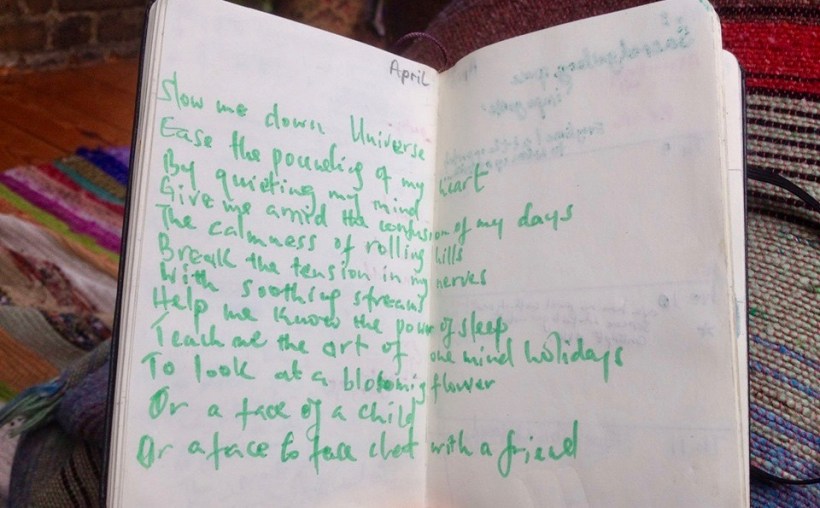 April
Slow me down Universe
Ease the pounding of my heart
By quieting my mind
Give me amid the confusion of my days
The calmness of rolling hills
Break the tension in my nerves
With soothing streams
Help me know the power of sleep
Teach me the art of one mind holidays
To look at a bloomig flower
Or a face of a child
Or a face to face chat with a friend